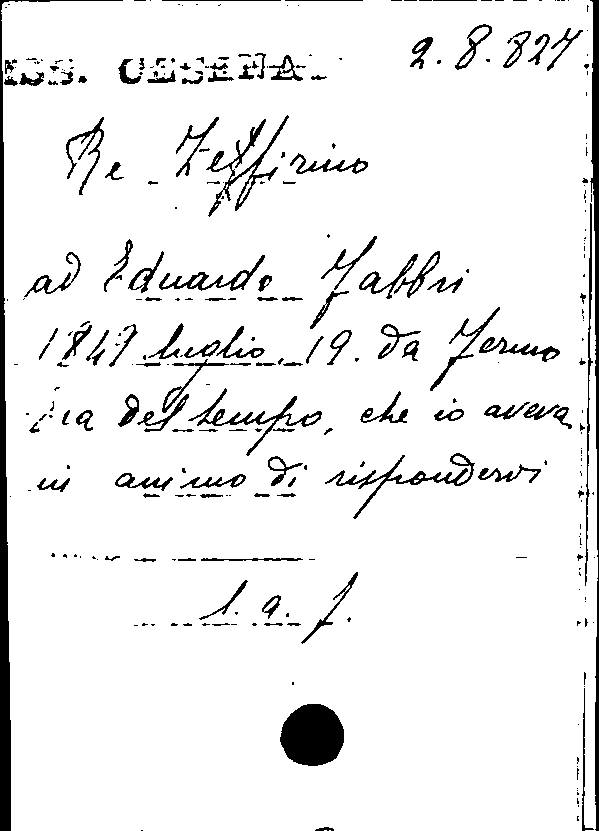 MSS. CESENA. 2.8.827
Re Zeffirino
ad Eduardo Fabbri
1849 luglio. 19. da Fermo
del tempo, che io aveva
in animo di rispondervi
l. a. f.